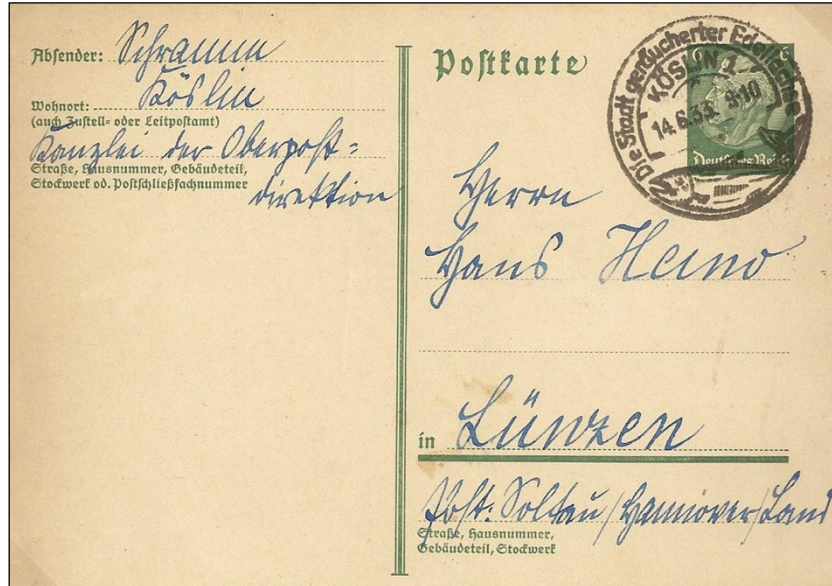 Absender: Schramm
Wohnort: Köslin
(auch Zustell- oder Leitpostamt)
Kanzlei der Oberpost=
Straße, Hausnummer, Gebäudeteil,
Stockwerk od. Postschließfachnummer
direktion
Postkarte
6
Die Stadt geräucherter Edelfische
KÖSLIN 1
14.6.33. 9-10
Deutsches Reich
Herrn
Hans Heino
in Lünzen
Post: Soltau/Hannover/Land
Straße, Hausnummer,
Gebäudeteil, Stockwerk